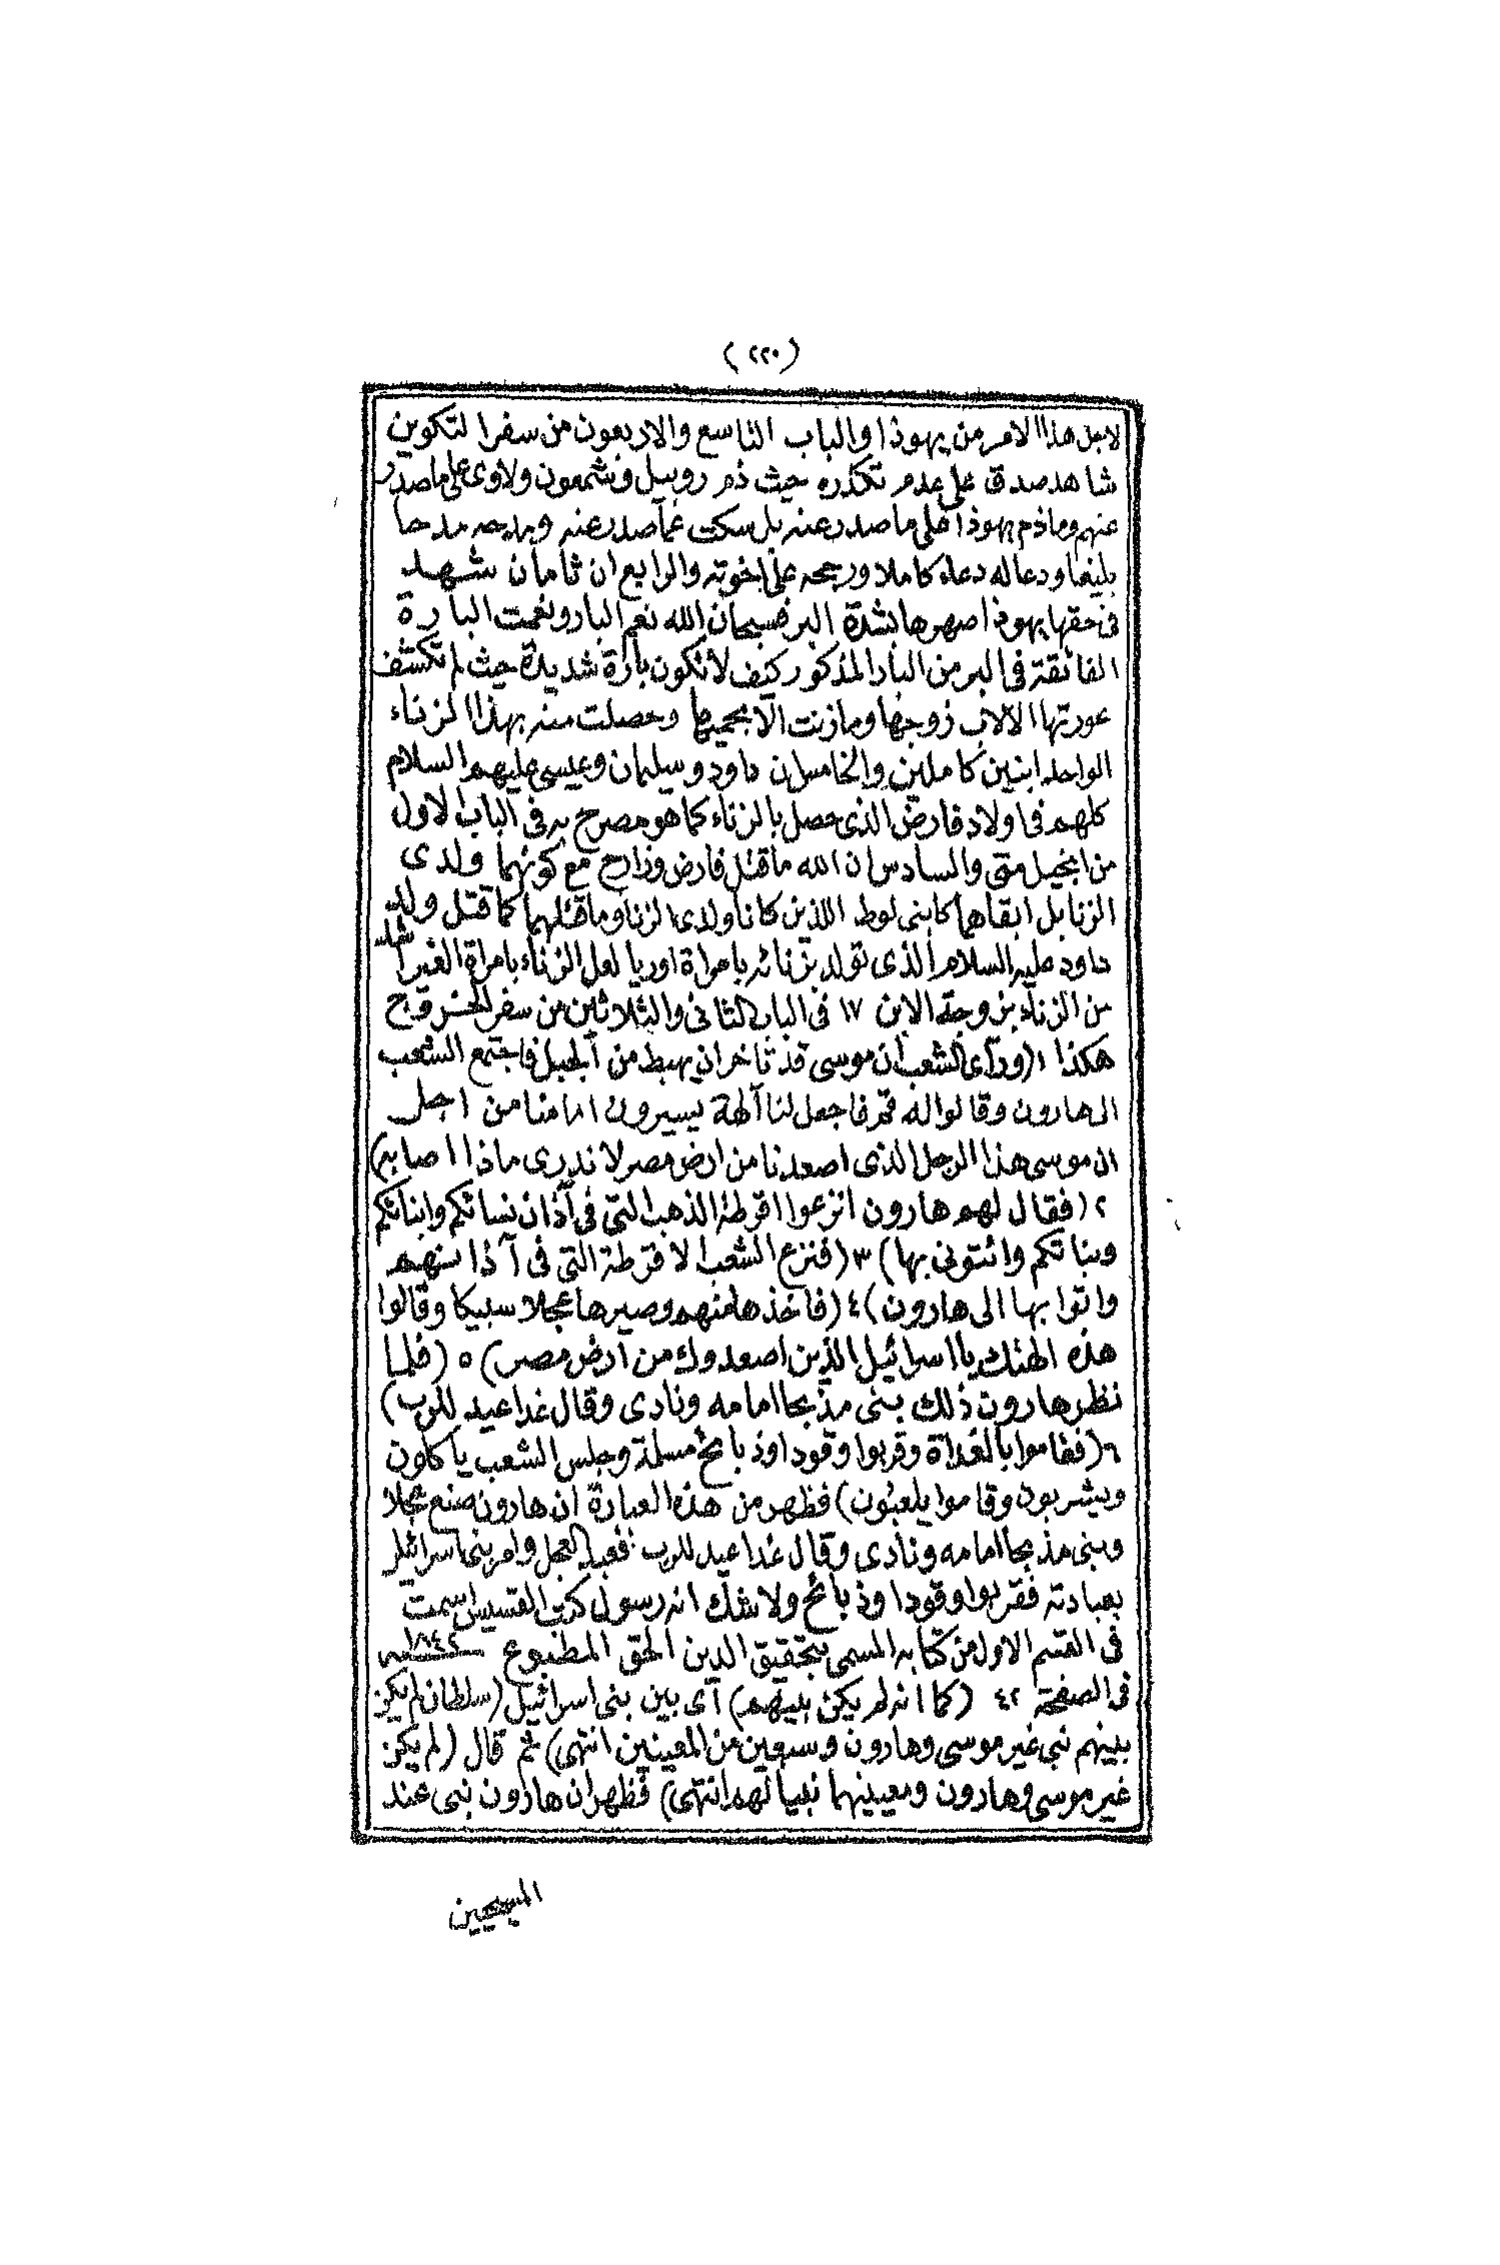 (٢٢٠)
لاجل هذا الامر من يهوذا والباب التاسع والاربعون من سفر التكوين
شاهد صدق على عدم تكدره حيث ذم روبيل وشمعون ولاوى على ما صدر
عنهم وما ذم يهوذا على ما صدر عنه بل سكت عما صدر عنه ومدحه مدحا
بليغا ودعا له دعاء كاملا ورجحه على اخوته والرابع ان ثامان شهد
فى حقها يهوذا صهرها بشدة البر فسبحان الله نعم البار ونعمت البارة
الفائقة فى البر من البار المذكور كيف لا تكون بارة شديدة حيث لم تكشف
عورتها الا لاب زوجها وما زنت الا بحميها وحصلت منه بهذا الزناء
الواحد ابنين كاملين والخامس ان داود وسليمان وعيسى عليهم السلام
كلهم فى اولاد فارض الذى حصل بالزناء كما هو مصرح به فى الباب الاول
من انجيل متى والسادس ان الله ما قتل فارض وزارح مع كونهما ولدى
الزنا بل ابقاهما كابنى لوط اللذين كانا ولدى الزنا وما قتلهما كما قتل ولد
داود عليه السلام الذى تولد بزنائه بامراة اوريا لعل الزناء بامراة الغير اشد
من الزناء بزوجة الابن ١٧ فى الباب الثانى والثلاثين من سفر الخروج
هكذا ١ (ورأى الشعب ان موسى قد تاخر ان يهبط من الجبل فاجتمع الشعب
الى هارون وقالوا له قم فاجعل لنا آلهة يسيرون امامنا من اجل
ان موسى هذا الرجل الذى اصعدنا من ارض مصر لا ندرى ماذا اصابه)
٢ (فقال لهم هارون انزعوا اقرطة الذهب التى فى آذان نسائكم وابنائكم
وبناتكم وائتونى بها) ٣ (فنزع الشعب الاقرطة التى فى آذانهم
واتوا بها الى هارون) ٤ (فاخذها منهم وصيرها عجلا سبيكا وقالوا
هذه الهتك يا اسرائيل الذين اصعدوك من ارض مصر) ٥ (فلما
نظر هارون ذلك بنى مذبحا امامه ونادى وقال غدا عيد للرب)
٦ (فقاموا بالغداة وقربوا وقودا وذبائح مسلمة وجلس الشعب ياكلون
ويشربون وقاموا يلعبون) فظهر من هذه العبارة ان هارون صنع عجلا
وبنى مذبحا امامه ونادى وقال غدا عيد للرب فعبد العجل وامر بنى اسرائيل
بعبادته فقربوا وقودا وذبائح ولا شك انه رسول كتب القسيس اسمت
فى القسم الاول من كتابه المسمى بتحقيق الدين الحق المطبوع سنة ١٨٤٢
فى الصفحة ٤٢ (كما انه لم يكن بينهم) أى بين بنى اسرائيل (سلطان لم يكن
بينهم نبى غير موسى وهارون وسبعين من المعينين انتهى) ثم قال (لم يكن
غير موسى وهارون ومعينيهما نبيا لهم انتهى) فظهر ان هارون نبى عند
المسيحيين